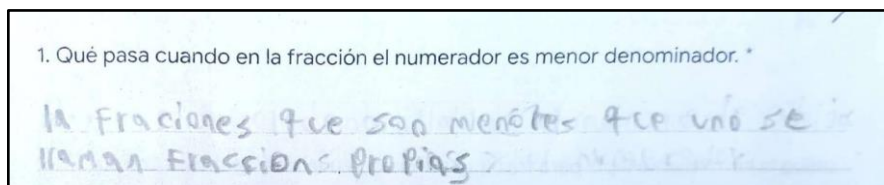 1. Qué pasa cuando en la fracción el numerador es menor denominador. *
la Fraciones que son menores que uno se
llaman Fraccions propias